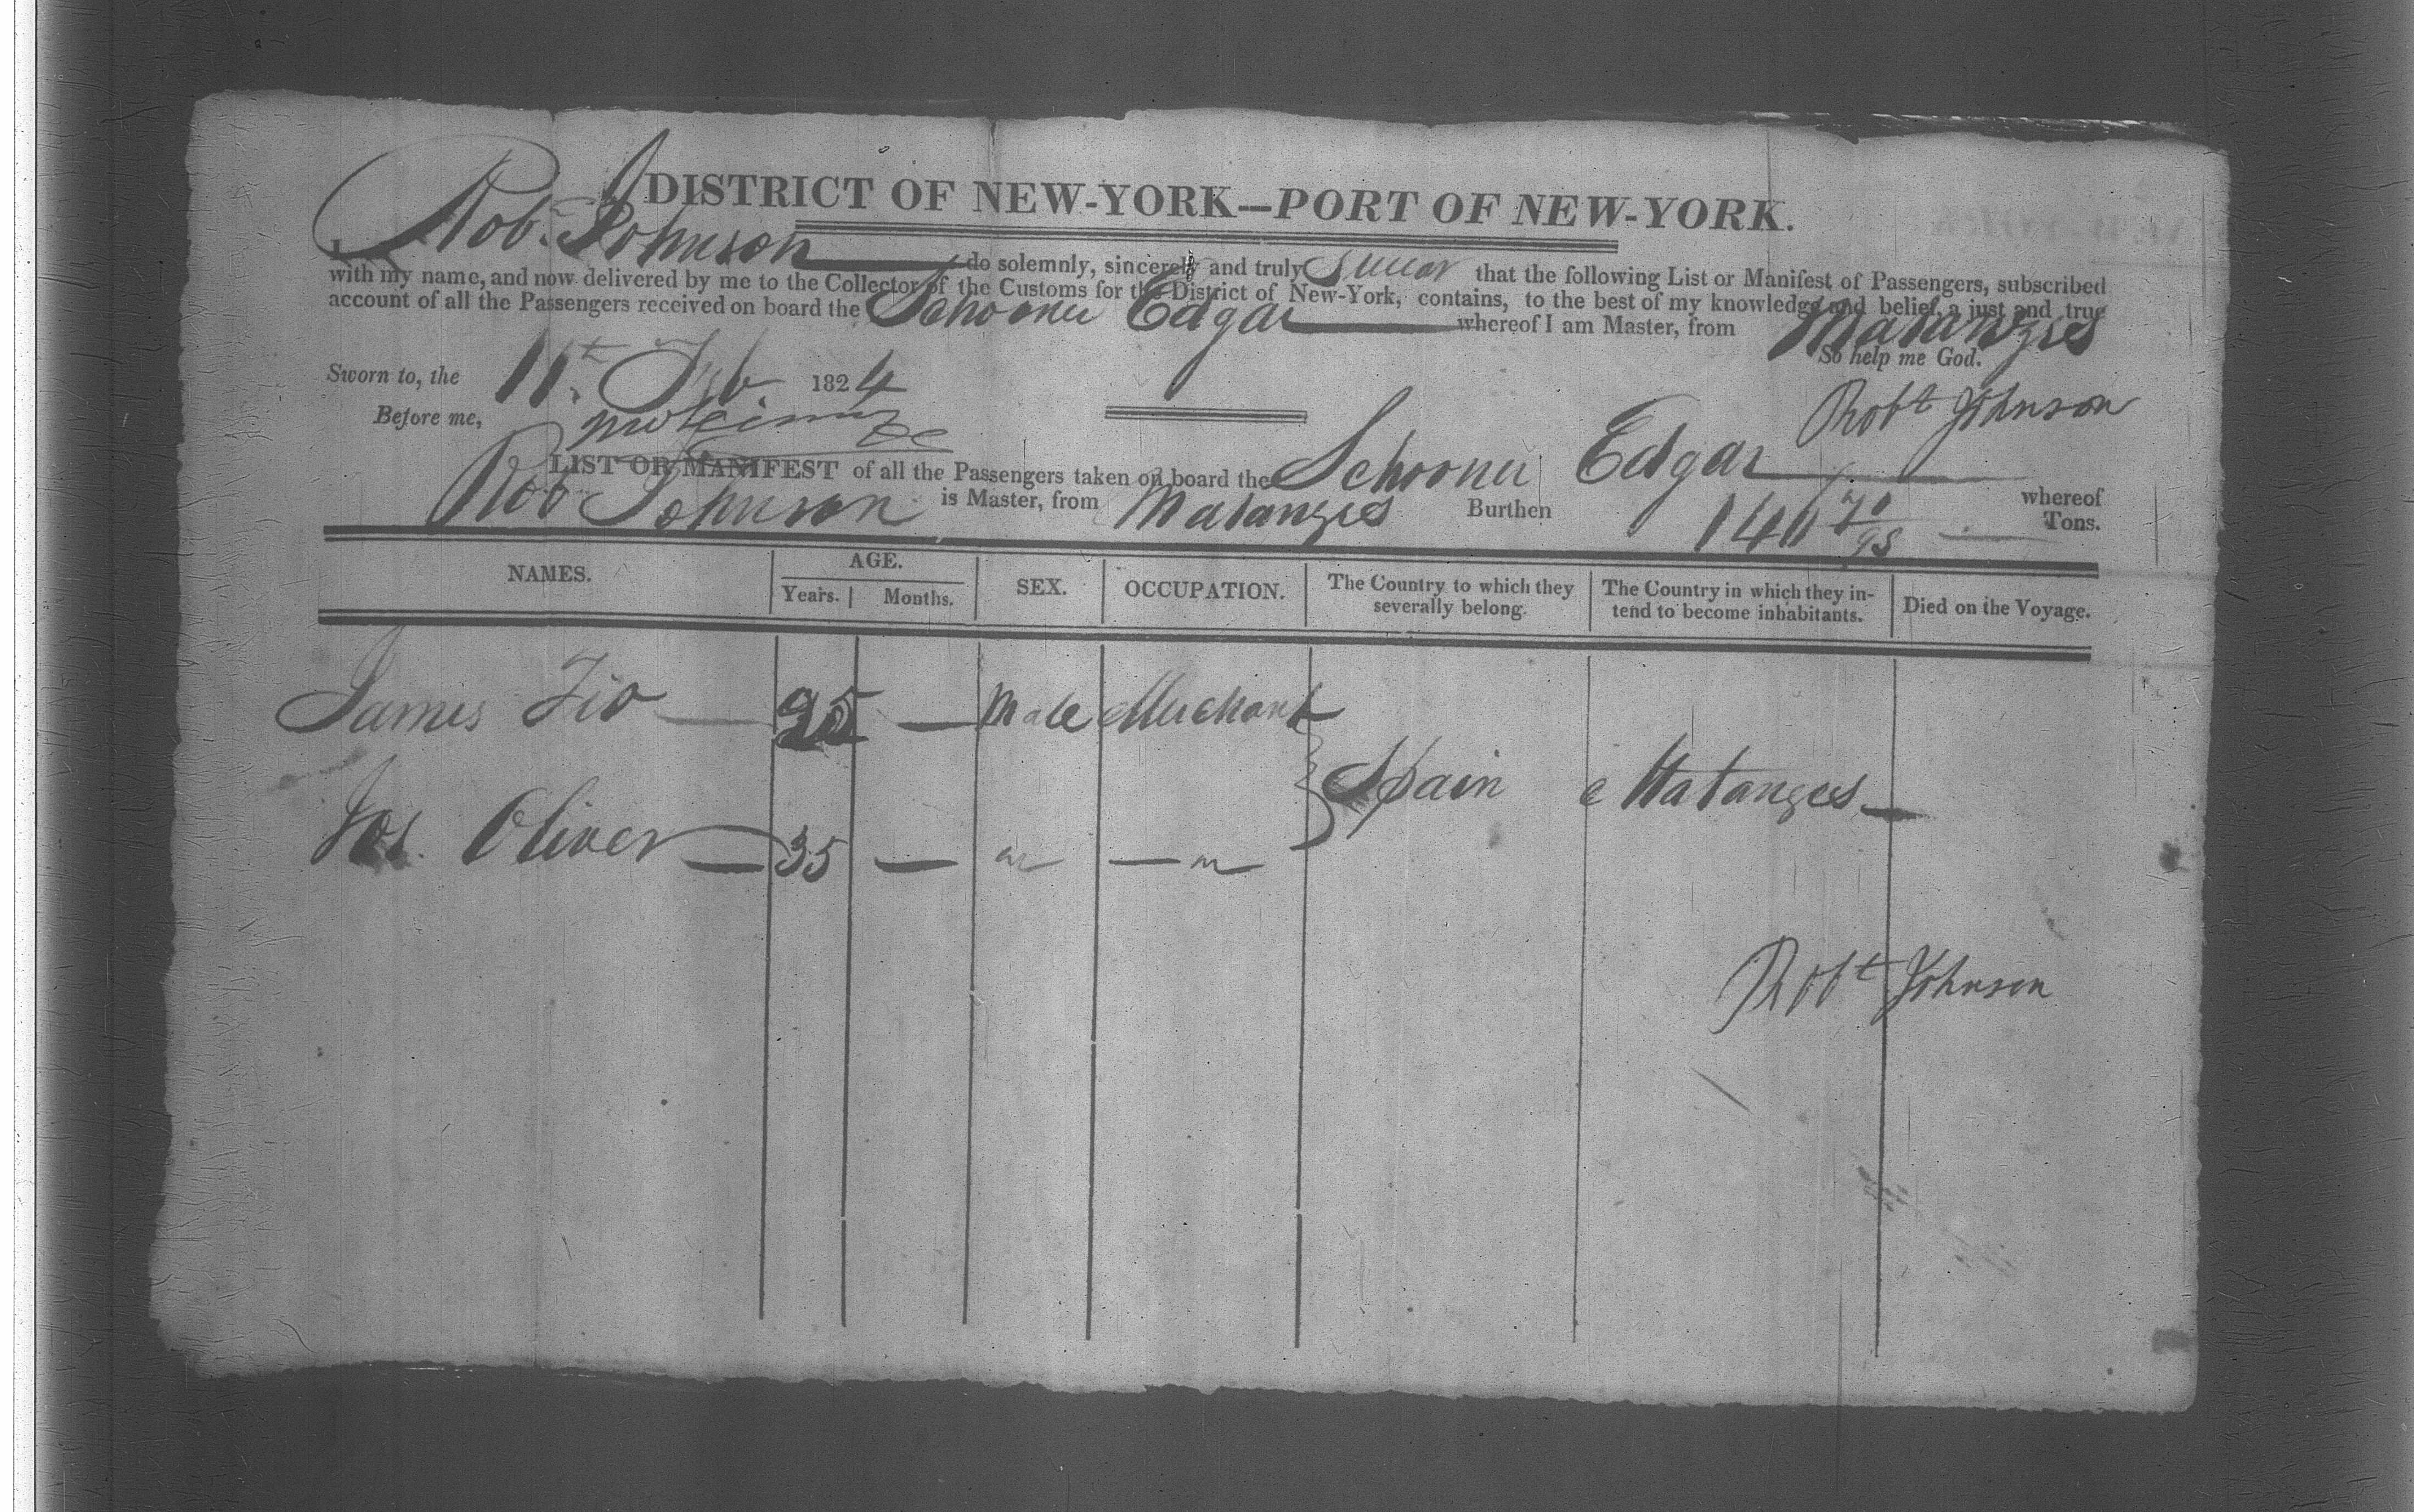 DISTRICT OF NEW-YORK—PORT OF NEW-YORK.
Rob. Johnson do solemnly, sincerely and truly swear that the following List or Manifest of Passengers, subscribed
with my name, and now delivered by me to the Collector of the Customs for the District of New-York, contains, to the best of my knowledge and belief, a just and true
account of all the Passengers received on board the Schooner Edgar whereof I am Master, from Matanzies
So help me God.
Sworn to, the 11th Feb 1824
Robt Johnson
Before me,
LIST OR MANIFEST of all the Passengers taken on board the Schooner Edgar whereof
Rob Johnson is Master, from Matanzies Burthen Tons.
NAMES. AGE. SEX. OCCUPATION. The Country to which they severally belong. The Country in which they in-tend to become inhabitants. Died on the Voyage.
Years. Months.
James Fio — 25 — Male Merchant
Spain Matanges —
Jos. Oliver — 35 —
Robt Johnson